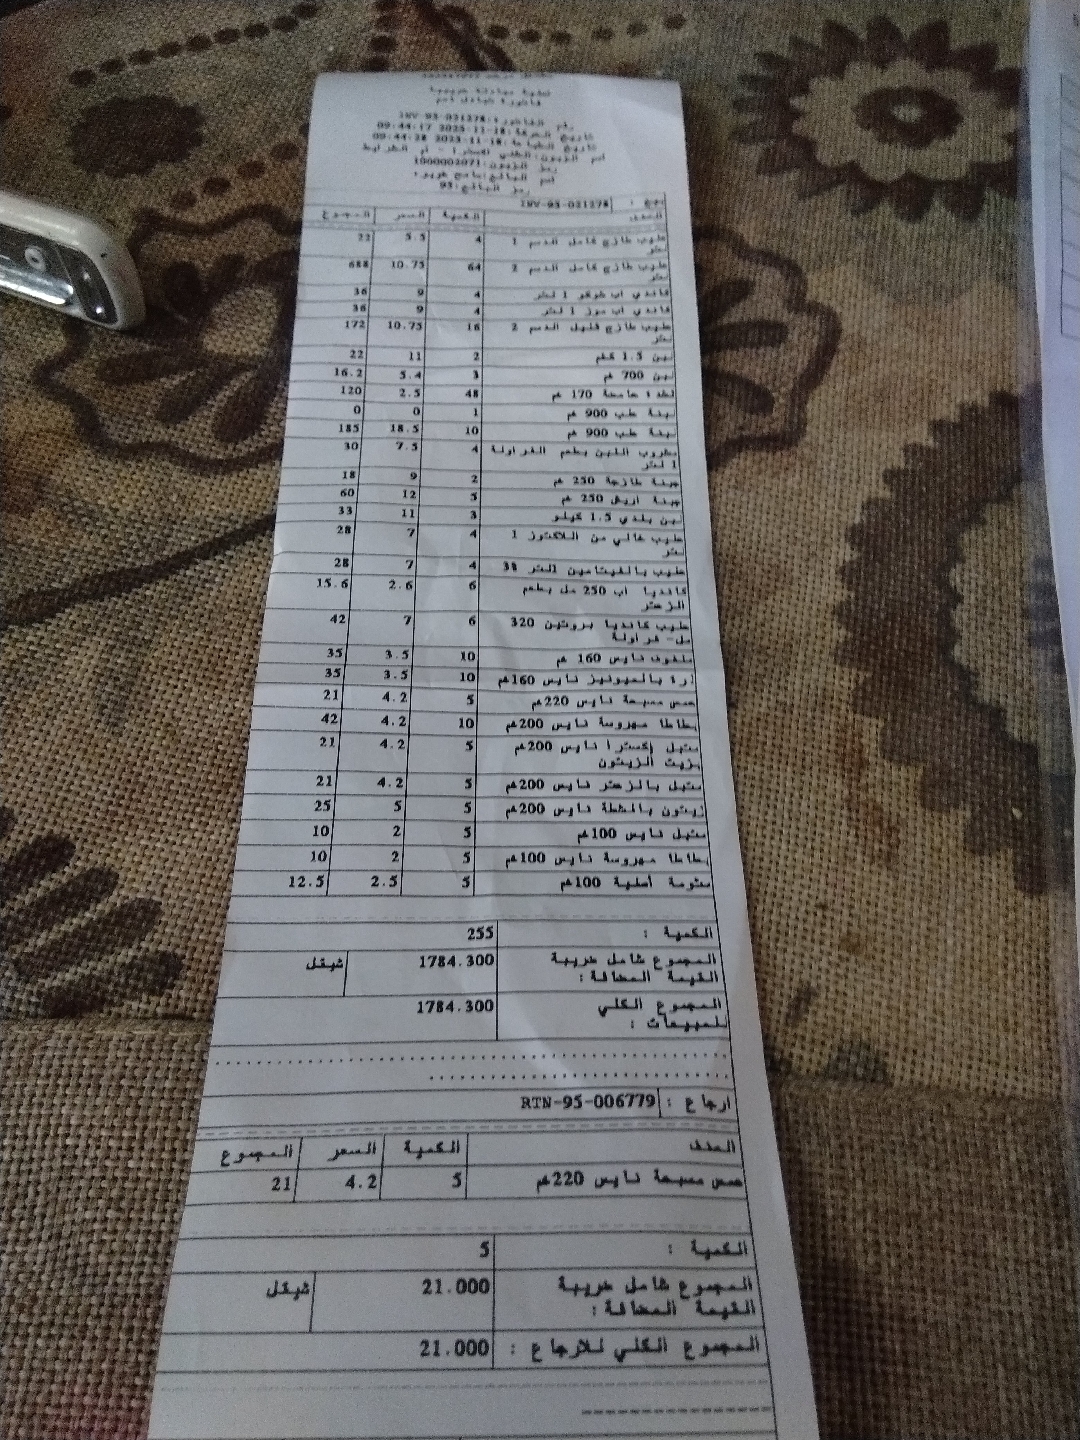 تصفية مبادلة ضريبية
فاتورة تبادل ذمم
رقم الفاتورة: INV-95-021278
تاريخ الحركة: 2025-11-18 09:44:17
تاريخ الطباعة: 2025-11-18 09:44:28
اسم الزبون:
رمز الزبون: 1000002071
اسم البائع:
رمز البائع: 95
بيع : INV-95-021278
الصنف الكمية السعر المجموع
حليب طازج كامل الدسم 1 4 5.5 22
لتر
حليب طازج كامل الدسم 2 64 10.75 688
لتر
كاندي اب شوكو 1 لتر 4 9 36
كاندي اب موز 1 لتر 4 9 36
حليب طازج قليل الدسم 2 16 10.75 172
لتر
لبن 1.5 كغم 2 11 22
لبن 700 غم 3 5.4 16.2
قشدة حامضة 170 غم 48 2.5 120
لبنة طب 900 غم 1 0 0
لبنة طب 900 غم 10 18.5 185
مشروب اللبن بطعم الفراولة 4 7.5 30
1 لتر
جبنة طازجة 250 غم 2 9 18
جبنة اريش 250 غم 5 12 60
لبن بلدي 1.5 كيلو 3 11 33
حليب خالي من اللاكتوز 1 4 7 28
لتر
حليب بالفيتامين التر 3% 4 7 28
كانديا اب 250 مل بطعم 6 2.6 15.6
حليب كانديا بروتين 320 6 7 42
مل- فراولة
ملفوف نايس 160 غم 10 3.5 35
ذرة بالميونيز نايس 160غم 10 3.5 35
حمص مسبحة نايس 220غم 5 4.2 21
بطاطا مهروسة نايس 200غم 10 4.2 42
متبل إكسترا نايس 200غم 5 4.2 21
بزيت الزيتون
متبل بالزعتر نايس 200غم 5 4.2 21
زيتون بالشطة نايس 200غم 5 5 25
متبل نايس 100غم 5 2 10
بطاطا مهروسة نايس 100غم 5 2 10
مثومة أصلية 100غم 5 2.5 12.5
الكمية : 255
المجموع شامل ضريبة 1784.300 شيقل
القيمة المضافة :
المجموع الكلي 1784.300
للمبيعات :
ارجاع : RTN-95-006779
الصنف الكمية السعر المجموع
حمص مسبحة نايس 220غم 5 4.2 21
الكمية : 5
المجموع شامل ضريبة 21.000 شيقل
القيمة المضافة :
المجموع الكلي للارجاع : 21.000